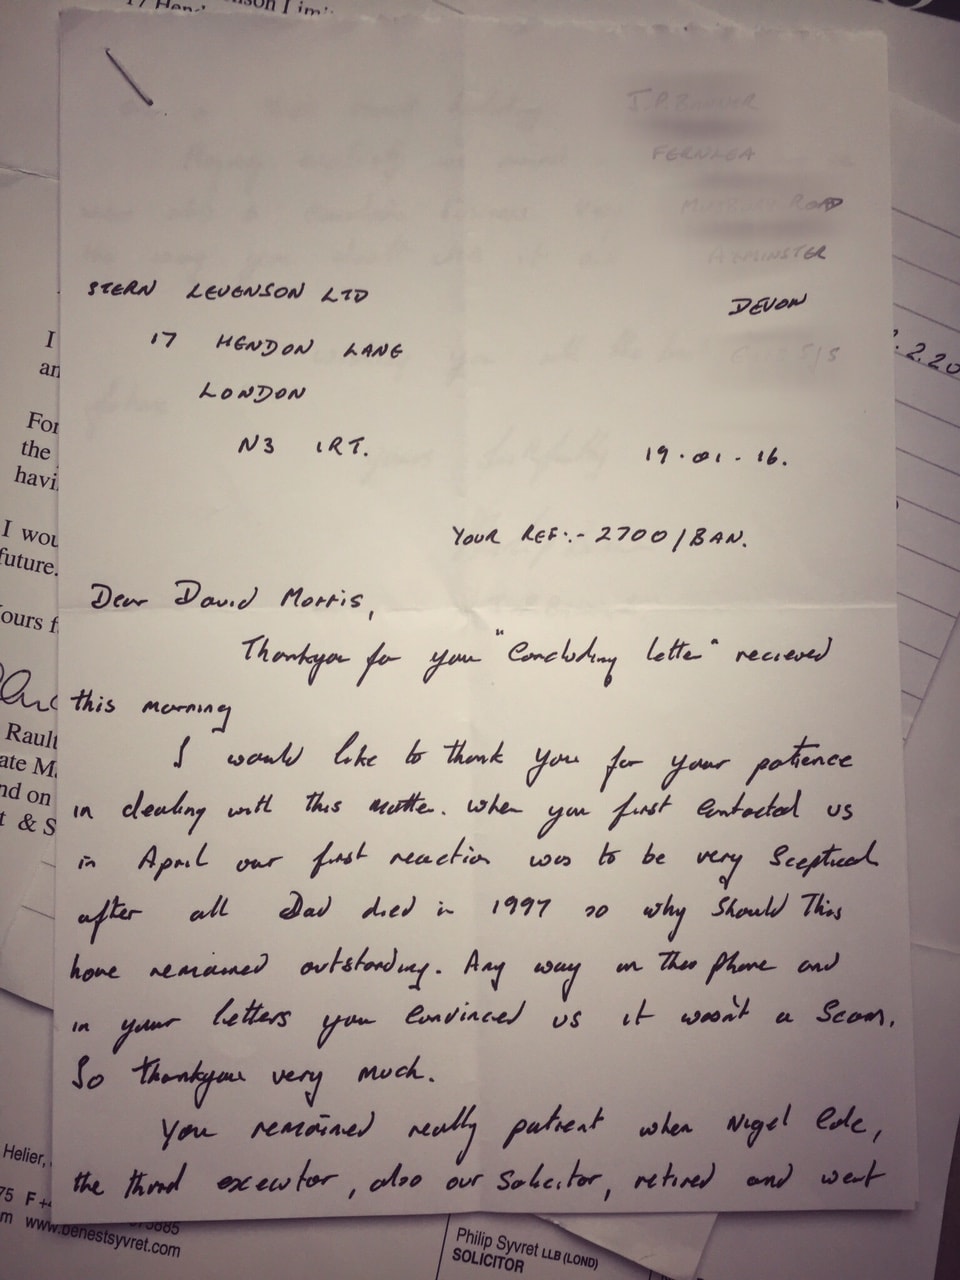 17 Hend
J.P.
FERNLEA
ROAD
AXMINSTER
DEVON
STERN LEVENSON LTD
17 HENDON LANE
LONDON
N3 1RT.
19.01-16.
YOUR REF:- 2700/BAN.
Dear David Morris,
Thankyou for you "Concluding letter" recieved
this morning
I would like to thank you for your patience
in dealing with this matter. When you first contacted us
in April our first reaction was to be very sceptical
after all Dad died in 1997 so why should this
have remained outstanding. Any way on the phone and
in your letters you convinced us it wasn't a scam.
So thankyou very much.
You remained really patient when Nigel Cole,
the third executor, also our solicitor, retired and went
I
an
For
the
havi
I wou
future.
ours f
Rault
ate M
nd on
t & S
.2.20
Helier,
75 F
5885
m www.benestsyvret.com
Philip Syvret LLB (LOND)
SOLICITOR